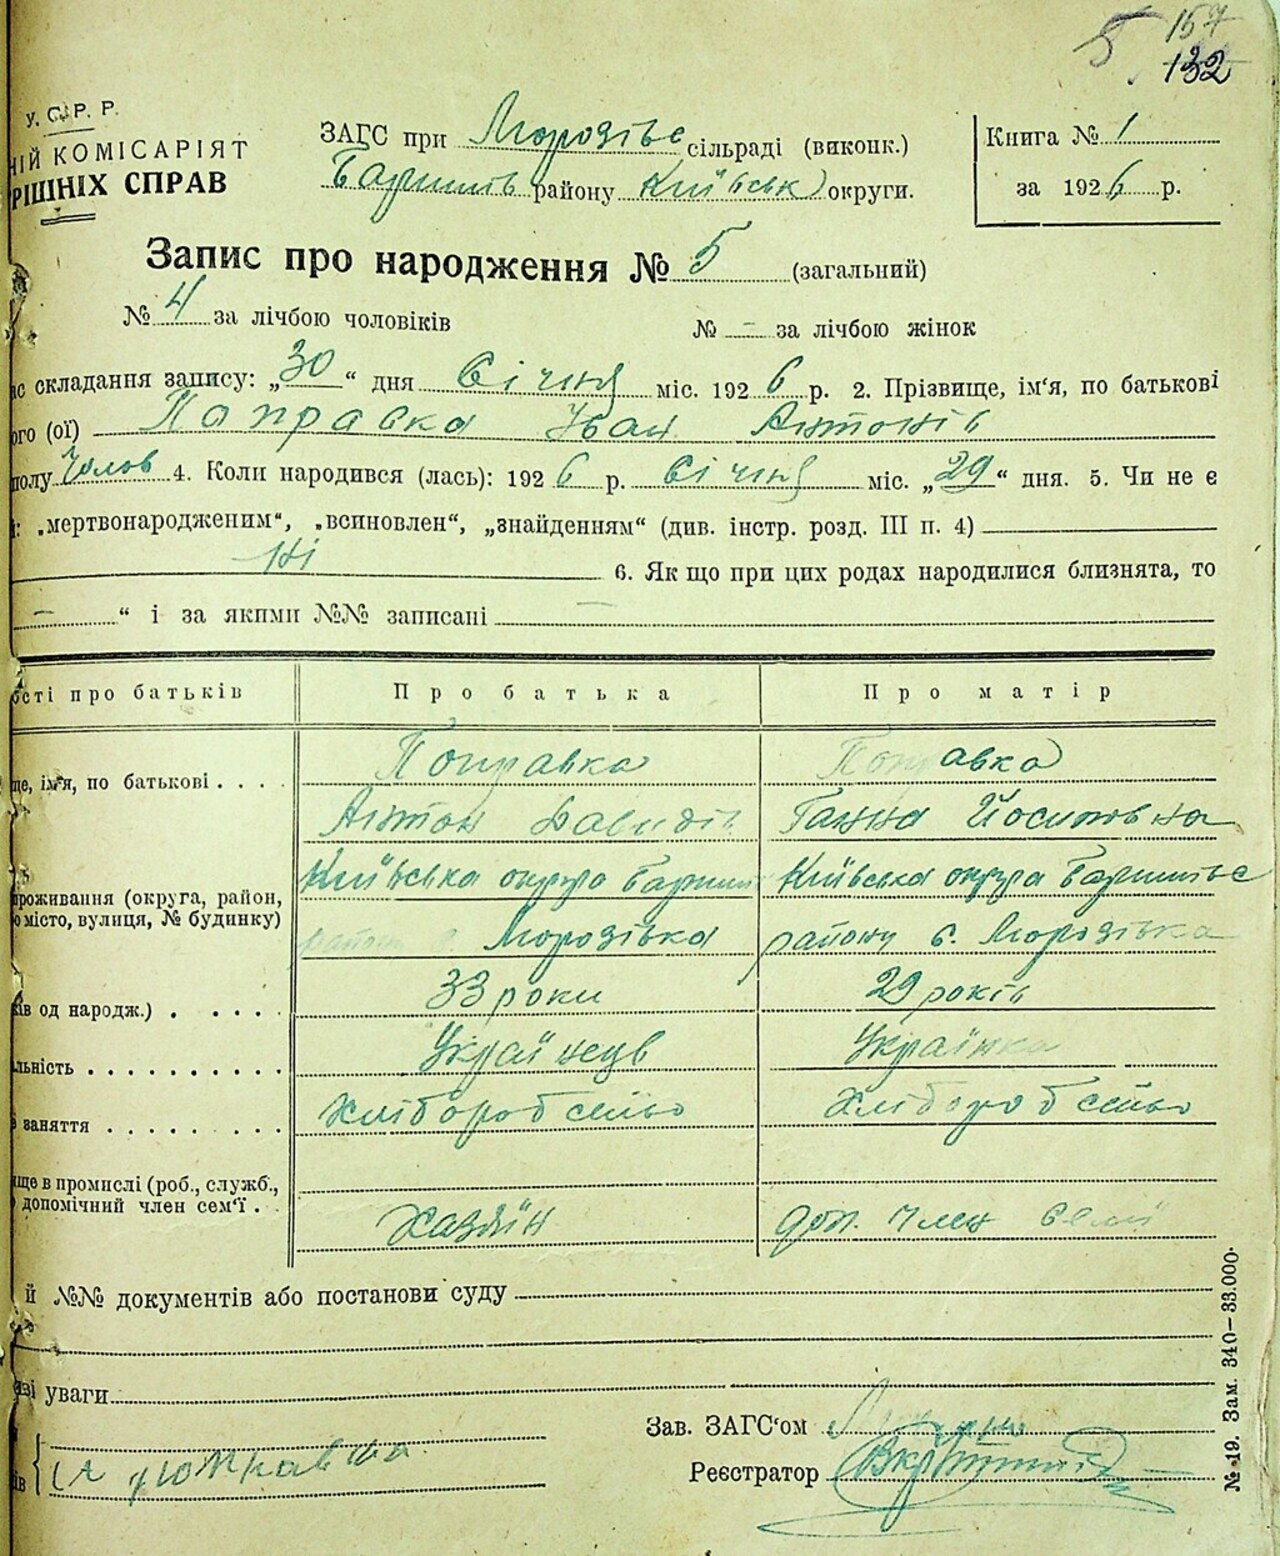 157
5 132
У.С.Р.Р.
НІЙ КОМІСАРІЯТ
РІШНІХ СПРАВ
ЗАГС при Морозівс сільраді (виконк.)
Баришів району Київськ округи.
Книга № 1
за 1926 р.
Запис про народження № 5 (загальний)
№ 4 за лічбою чоловіків № - за лічбою жінок
ас складання запису: „30“ дня січня міс. 1926 р. 2. Прізвище, ім‘я, по батькові
ого (ої) Поправка Іван Антонів
полу Чолов 4. Коли народився (лась): 1926 р. січня міс. „29“ дня. 5. Чи не є
і: „мертвонародженим“, „всиновлен“, „знайденням“ (див. інстр. розд. III п. 4)
Ні 6. Як що при цих родах народилися близнята, то
— “ і за якими №№ записані —
ості про батьків Про батька Про матір
ще, ім‘я, по батькові . . . . Поправка Поправка
Антон Давидів Ганна Йосиповна
проживання (округа, район, Київська округа Баришів Київська округа Баришівс
о місто, вулиця, № будинку) району с. Морозівка району с. Морозівка
ків од народж.) . . . . . 33 роки 29 років
льність . . . . . . . . . . Українець Українка
заняття . . . . . . . . Хліборобство Хліборобство
ще в промислі (роб., служб.,
допомічний член сем‘ї . . Хазяїн доп. член семї
й №№ документів або постанови суду
ві уваги
Зав. ЗАГС‘ом
Реєстратор
ів
№ 19. Зам. 340—33.000.